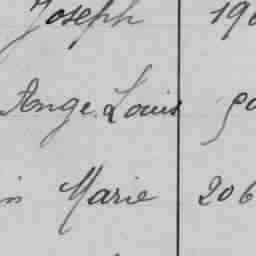 Joseph 190
Ange Louis 90
in Marie 206